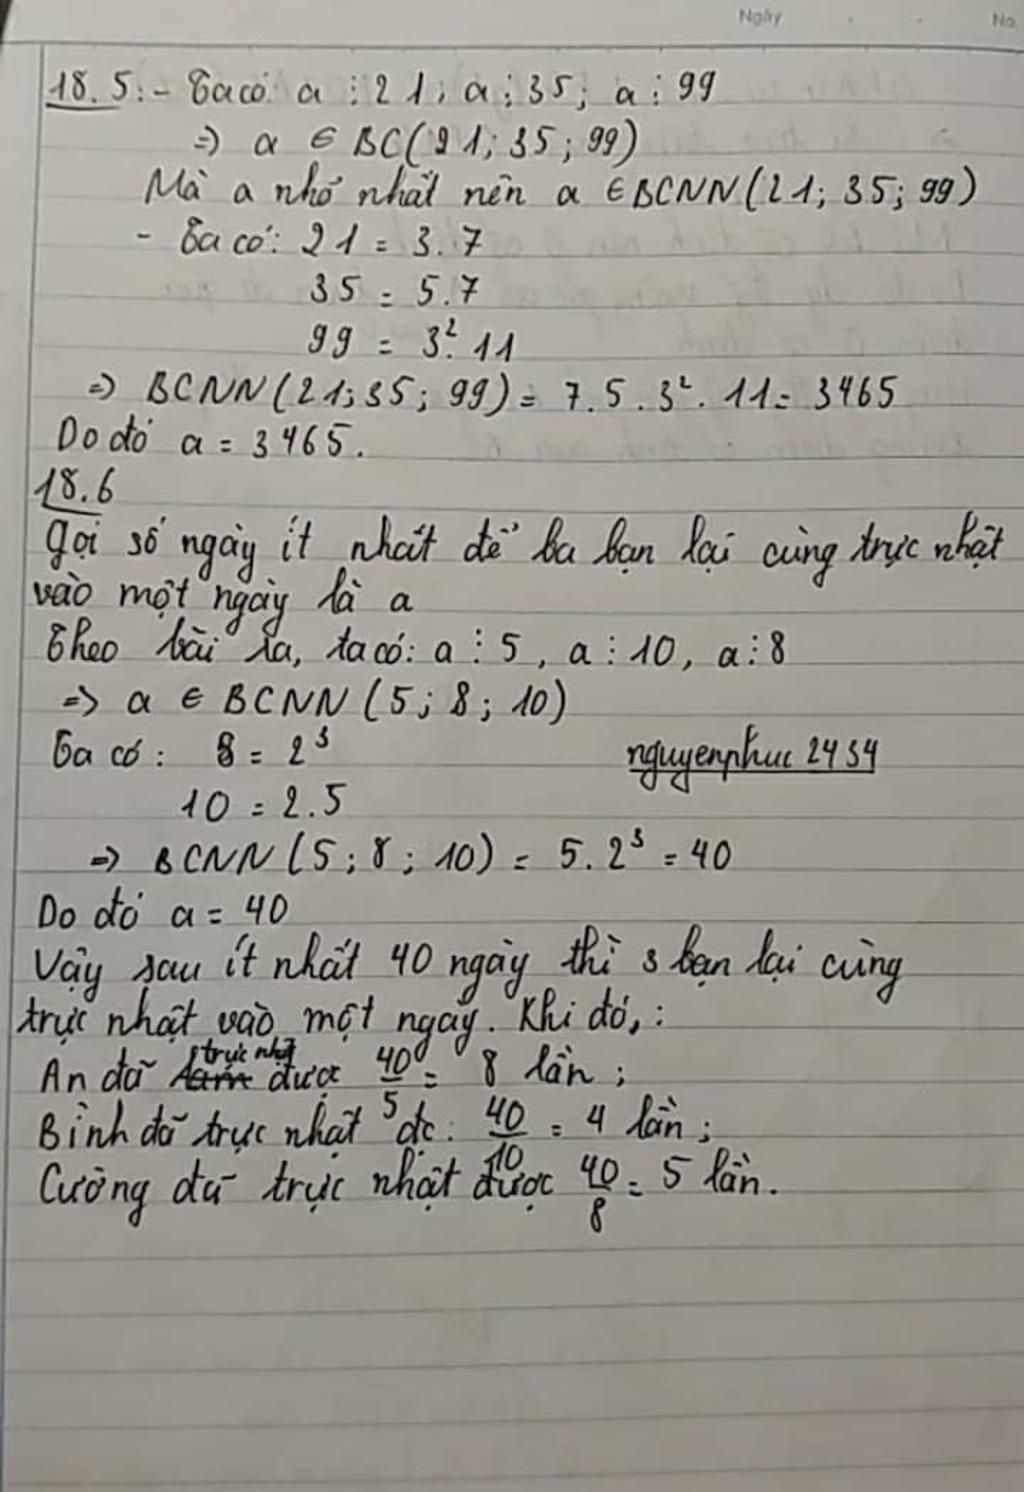 Ngày No.
18.5: - Ta có: a ⋮ 21; a ⋮ 35; a ⋮ 99
=> a ∈ BC(21; 35; 99)
Mà a nhỏ nhất nên a ∈ BCNN(21; 35; 99)
- Ta có: 21 = 3.7
35 = 5.7
99 = 3².11
=> BCNN(21; 35; 99) = 7.5.3².11 = 3465
Do đó a = 3465.
18.6
Gọi số ngày ít nhất để ba bạn lại cùng trực nhật
vào một ngày là a
Theo bài ra, ta có: a ⋮ 5, a ⋮ 10, a ⋮ 8
=> a ∈ BCNN(5; 8; 10)
Ta có: 8 = 2³ nguyenphuc 2434
10 = 2.5
=> BCNN(5; 8; 10) = 5.2³ = 40
Do đó a = 40
Vậy sau ít nhất 40 ngày thì 3 bạn lại cùng
trực nhật vào một ngày. Khi đó, :
An đã trực nhật được 40/5 = 8 lần;
Bình đã trực nhật đc: 40/10 = 4 lần;
Cường đã trực nhật được 40/8 = 5 lần.